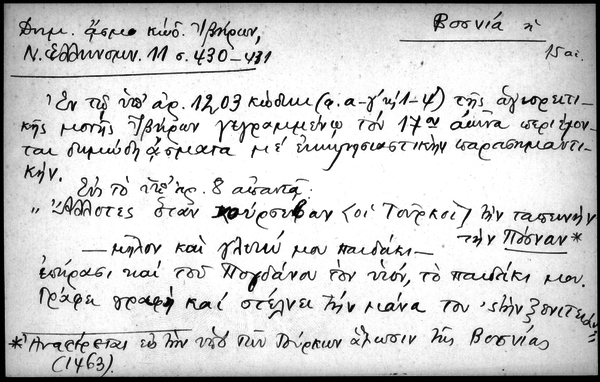 Δημ. ᾆσμα κώδ. Ἰβήρων,
Βοσνία ἡ
Ν. Ἑλληνομν. 11 σ. 430-431
15 αἰ.
Ἐν τῷ ὑπ' ἀρ. 1203 κώδικι τῆς ἁγιορειτι-
κῆς μονῆς Ἰβήρων γεγραμμένῳ τὸν 17ον αἰῶνα περιέχον-
ται δημώδη ᾄσματα μέ ἐκκλησιαστικὴν παρασημαντι-
κήν.
Εἰς τὸ ὑπ' ἀρ. 8 ἀπαντᾷ
„ Ἄλλοτες ὅταν κούρσεβαν <οἱ Τοῦρκοι> τὴν ταπεινὴν
τὴν Πόσναν*
— μῆλον καὶ γλυκύ μου παιδάκι —
ἐπήρασι καὶ τοῦ Πογδάνου τὸν υἱόν, τὸ παιδάκι μου.
Γράφει γραφὴ καὶ στέλνει τὴν μάνα του 'ς τὴν ξενιτείαν"
* Ἀναφέρεται εἰς τὴν ὑπὸ τῶν Τούρκων ἅλωσιν τῆς Βοσνίας
(1463).